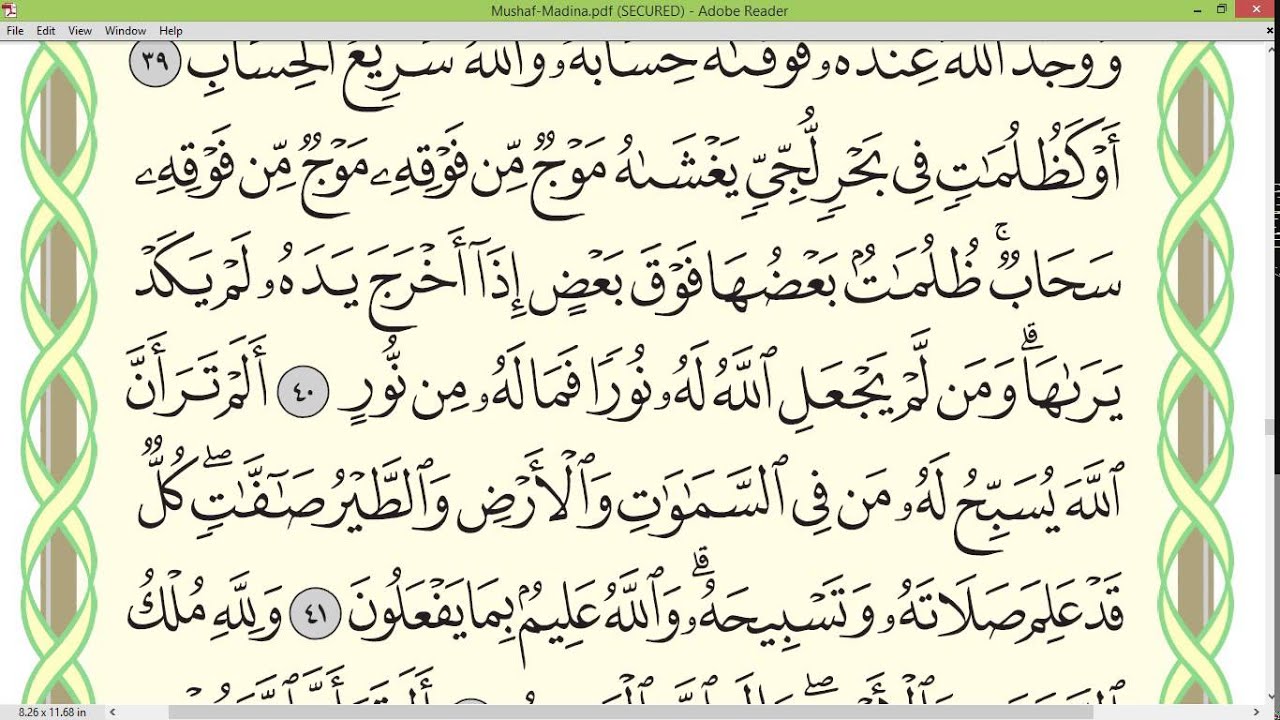 Mushaf-Madina.pdf (SECURED) - Adobe Reader
File Edit View Window Help
وَوَجَدَ ٱللَّهَ عِندَهُۥ فَوَفَّىٰهُ حِسَابَهُۥ وَٱللَّهُ سَرِيعُ ٱلْحِسَابِ ٣٩
أَوْ كَظُلُمَٰتٍ فِى بَحْرٍ لُّجِّىٍّ يَغْشَىٰهُ مَوْجٌ مِّن فَوْقِهِۦ مَوْجٌ مِّن فَوْقِهِۦ
سَحَابٌ ۚ ظُلُمَٰتٌۢ بَعْضُهَا فَوْقَ بَعْضٍ إِذَآ أَخْرَجَ يَدَهُۥ لَمْ يَكَدْ
يَرَىٰهَا ۗ وَمَن لَّمْ يَجْعَلِ ٱللَّهُ لَهُۥ نُورًا فَمَا لَهُۥ مِن نُّورٍ ٤٠ أَلَمْ تَرَ أَنَّ
ٱللَّهَ يُسَبِّحُ لَهُۥ مَن فِى ٱلسَّمَٰوَٰتِ وَٱلْأَرْضِ وَٱلطَّيْرُ صَٰٓفَّٰتٍ ۖ كُلٌّ
قَدْ عَلِمَ صَلَاتَهُۥ وَتَسْبِيحَهُۥ ۗ وَٱللَّهُ عَلِيمٌۢ بِمَا يَفْعَلُونَ ٤١ وَلِلَّهِ مُلْكُ
8.26 x 11.68 in